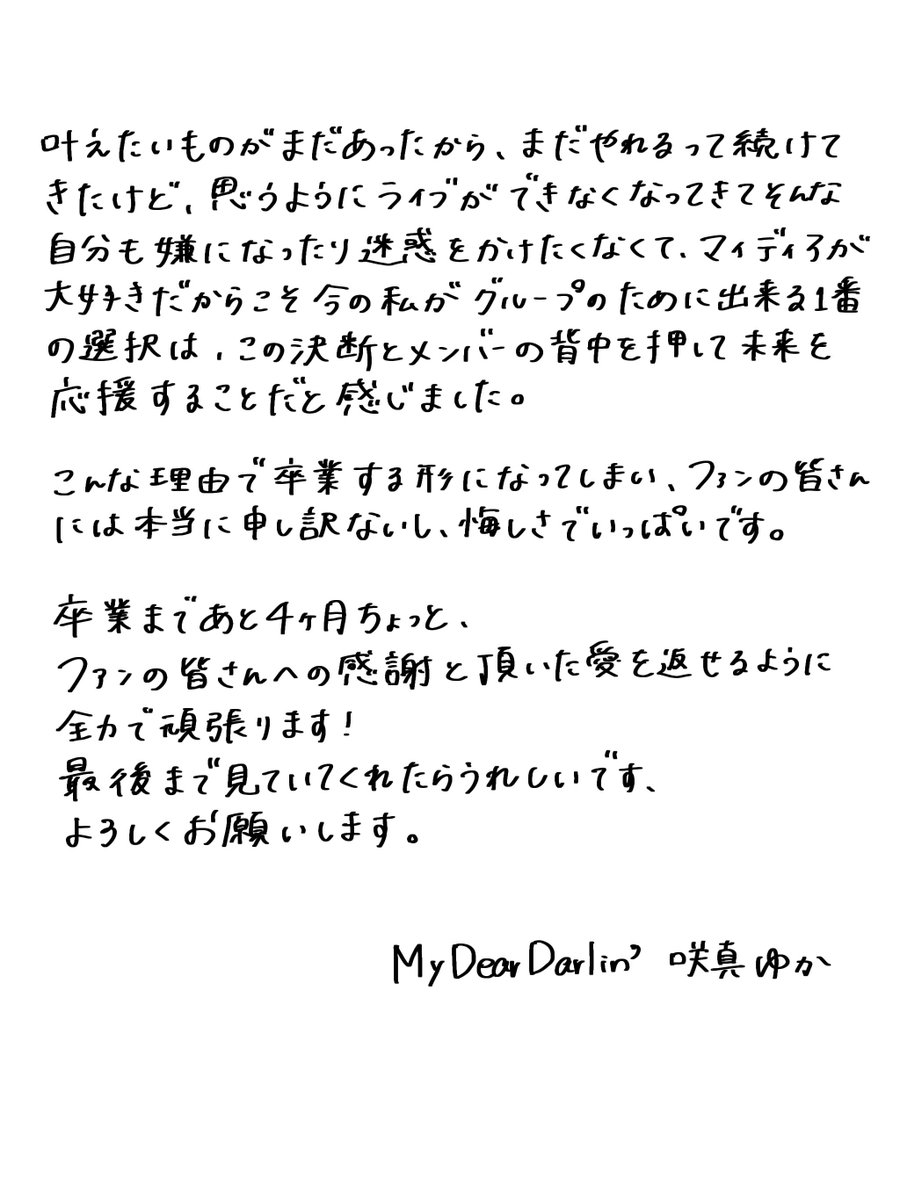 叶えたいものがまだあったから、まだやれるって続けて
きたけど、思うようにライブができなくなってきてそんな
自分も嫌になったり迷惑をかけたくなくて、マイディアが
大好きだからこそ今の私がグループのために出来る1番
の選択は、この決断とメンバーの背中を押して未来を
応援することだと感じました。
こんな理由で卒業する形になってしまい、ファンの皆さん
には本当に申し訳ないし、悔しさでいっぱいです。
卒業まであと4ヶ月ちょっと、
ファンの皆さんへの感謝と頂いた愛を返せるように
全力で頑張ります!
最後まで見ていてくれたらうれしいです、
よろしくお願いします。
MyDearDarlin' 咲真ゆか